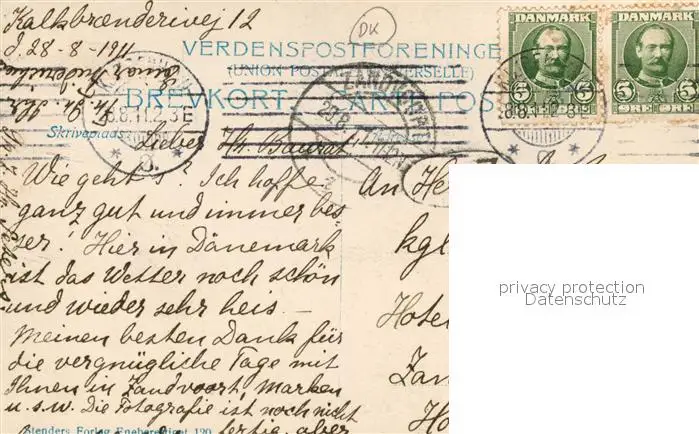 Kalkbrænderivej 12
d. 28-8-1911
DK
VERDENSPOSTFORENINGE
(UNION POST ERSELLE)
BREVKORT
Skriveplads
DANMARK
DANMARK
5 ØRE 5
5 ØRE 5
ZANDVOORT
Lieber Hr. Baurat!
Wie geht's? Ich hoffe
ganz gut und immer bes-
ser! Hier in Dänemark
ist das Wetter noch schön
und wieder sehr heis —
Meinen besten Dank für
die vergnügliche Tage mit
Ihnen in Zandvoort, Marken
u.s.w. Die Fotografie ist noch nicht
fertig, aber
An He
kgl
Hote
Zan
Ho
privacy protection
Datenschutz
Stenders Forlag Eneberettiget 120